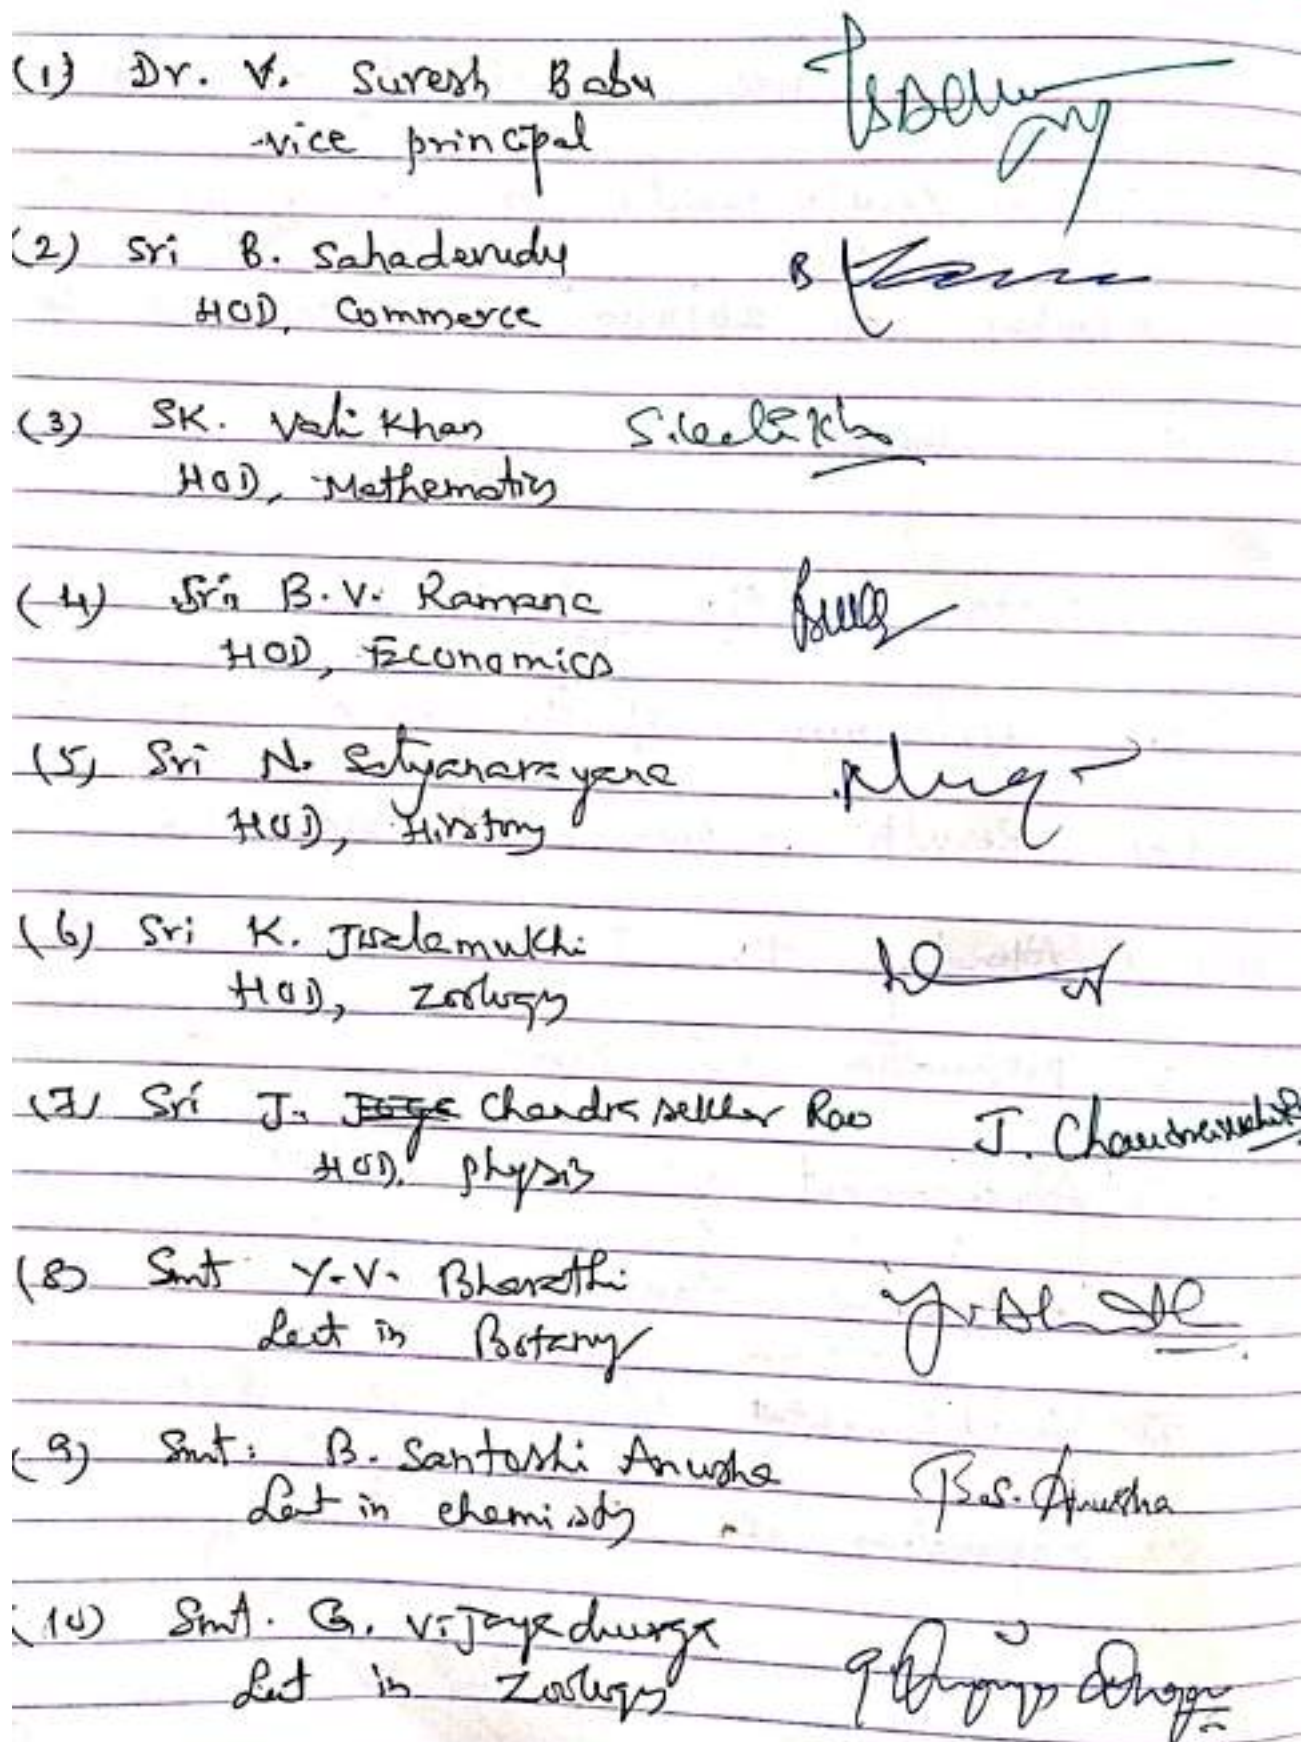 (1) Dr. V. Suresh Babu
vice principal
(2) Sri B. Sahadevudu
HOD, Commerce B
(3) SK. Vali Khan S.Vali Kha
HOD, Mathematics
(4) Sri B.V. Ramana
HOD, Economics
(5) Sri N. Satyanarayana
HOD, History
(6) Sri K. Jwalamukhi
HOD, Zoology
(7) Sri J. Chandra sekhar Rao J. Chandrasekhar
HOD, physics
(8) Smt Y.V. Bharathi
Lect in Botany
(9) Smt: B. Santoshi Anusha B.S. Anusha
Lect in chemistry
(10) Smt. G. Vijaya durga
Lect in Zoology